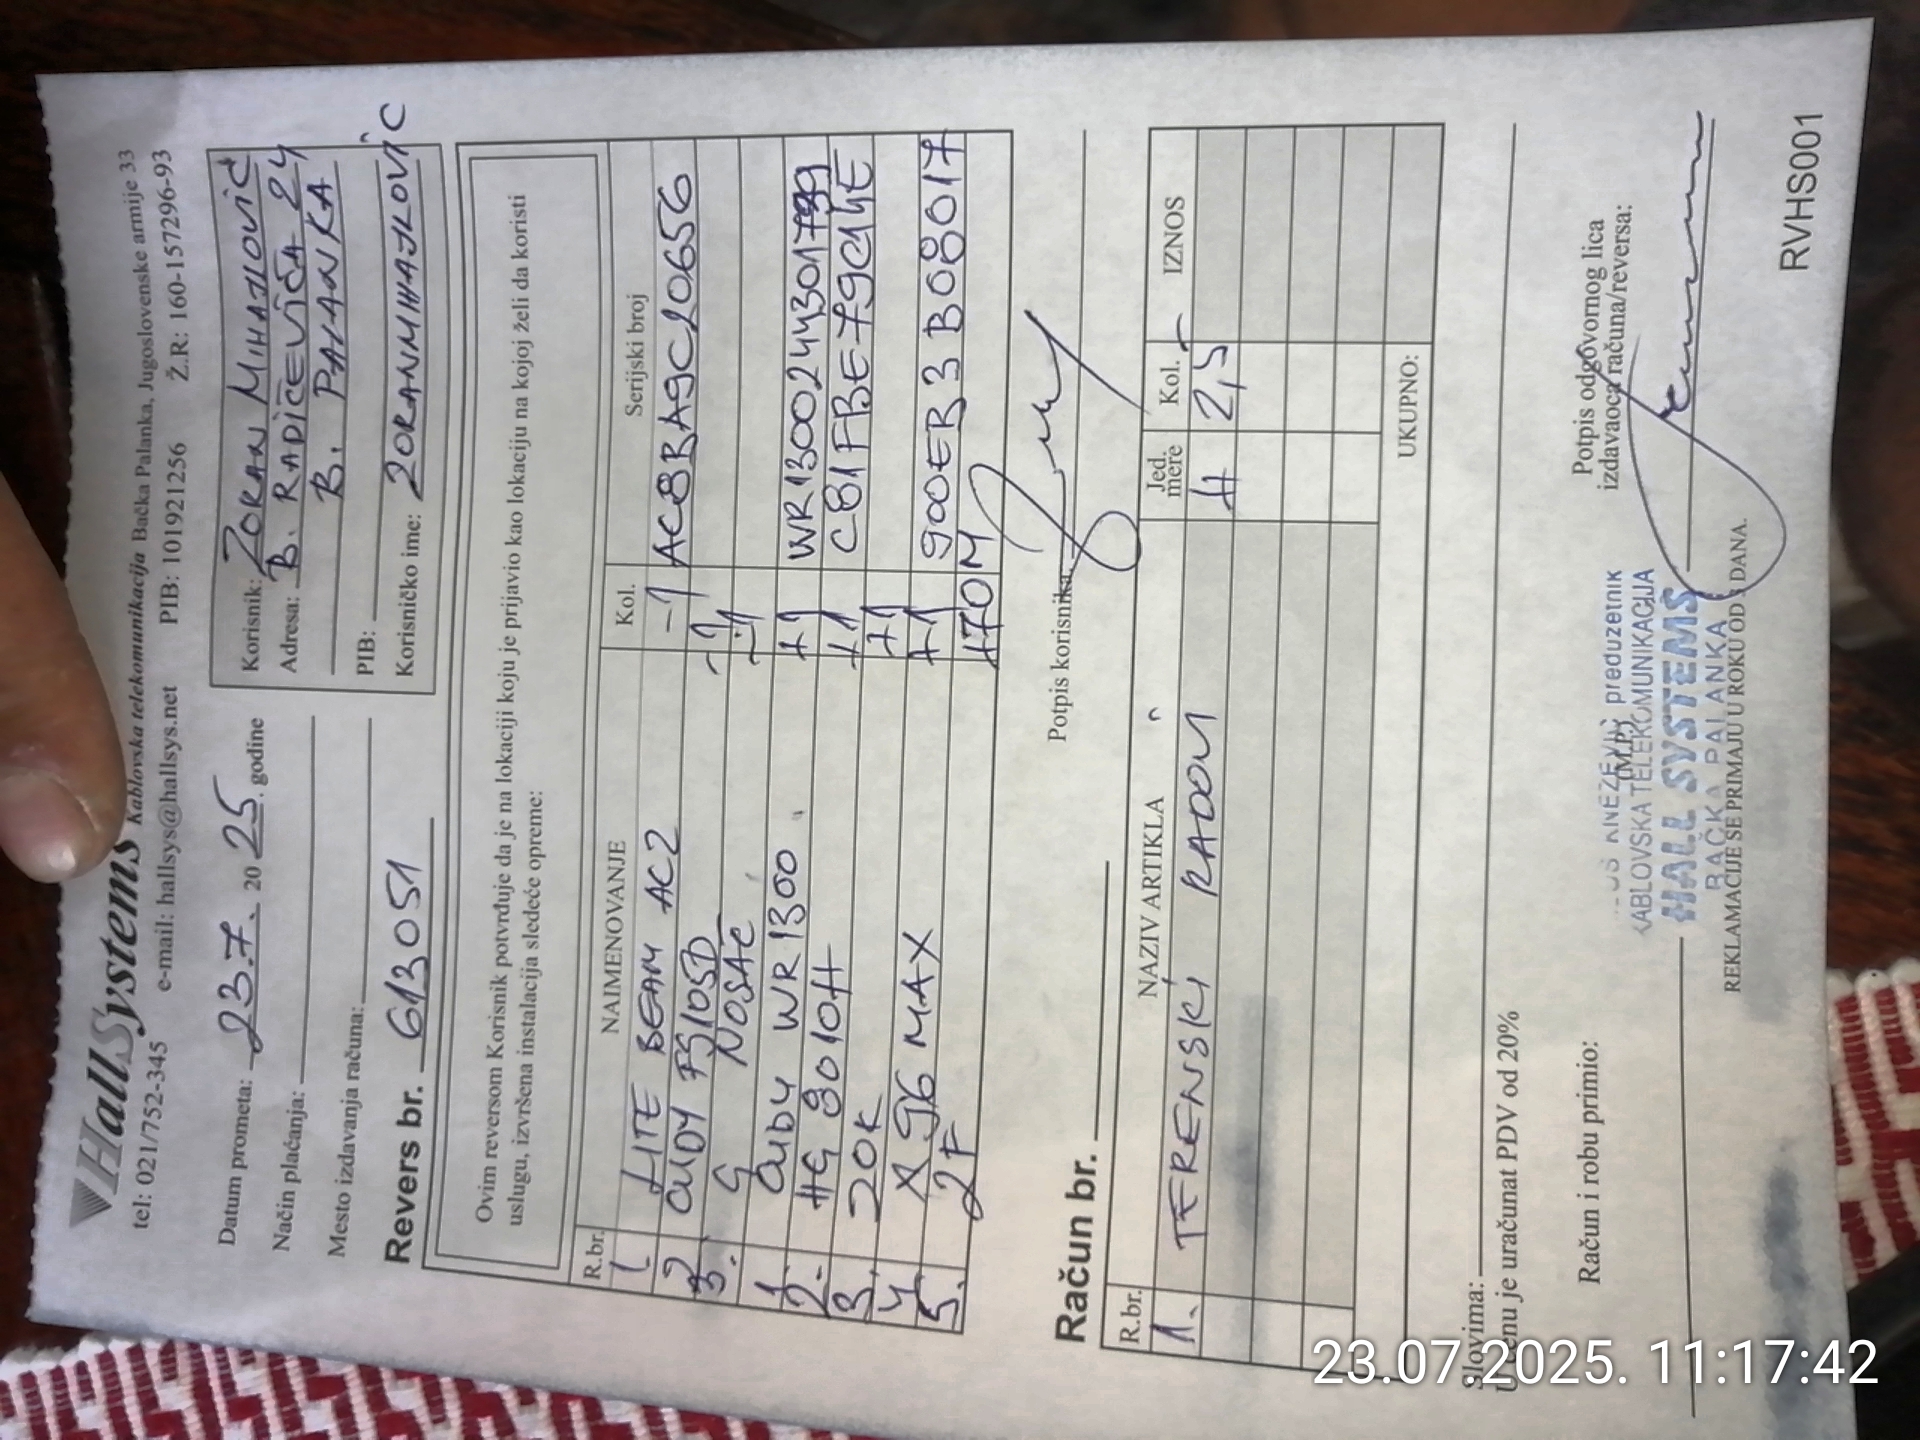 HallSystems Kablovska telekomunikacija Bačka Palanka, Jugoslovenske armije 33
tel: 021/752-345 e-mail: hallsys@hallsys.net PIB: 101921256 Ž.R: 160-157296-93
Datum prometa: 23.7. 2025. godine
Način plaćanja:
Mesto izdavanja računa:
Revers br. 613051
Korisnik: ZORAN MIHAJLOVIĆ
Adresa: B. RADIČEVIĆA 24
B. PALANKA
PIB:
Korisničko ime: ZORANMIHAJLOVIC
Ovim reversom Korisnik potvrđuje da je na lokaciji koju je prijavio kao lokaciju na kojoj želi da koristi
uslugu, izvršena instalacija sledeće opreme:
R.br. NAIMENOVANJE Kol. Serijski broj
1 LITE BEAM AC2 -1 AC8BA9C20656
2 CUDY FS105D -1
3. G NOSAČ -1
1 CUDY WR1300 +1
2. HG 8010H +1 C81FBE79C14E
3. 20K +1
4 X96 MAX +1 900ER3B08017
5. 2F +70M
Potpis korisnika:
Račun br.
R.br. NAZIV ARTIKLA Jed. mere Kol. IZNOS
1. TERENSKI RADOVI H 2,5 -
UKUPNO:
Slovima:
U cenu je uračunat PDV od 20%
Račun i robu primio:
(M.P.)
Potpis odgovornog lica
izdavaoca računa/reversa:
KNEŽEVIĆ preduzetnik
KABLOVSKA TELEKOMUNIKACIJA
HALL SYSTEMS
BAČKA PALANKA
REKLAMACIJE SE PRIMAJU U ROKU OD 3 DANA.
RVHS001
23.07.2025. 11:17:42